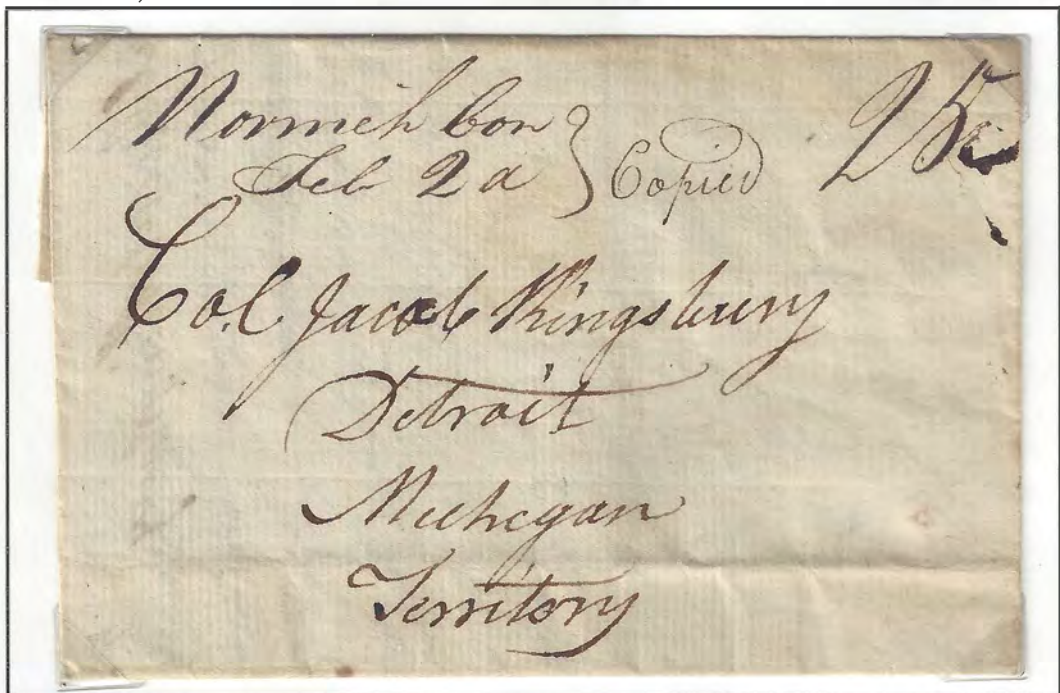 Norwich Con
Feb 2d
Copied
25
Col Jacob Kingsbury
Detroit
Michegan
Territory